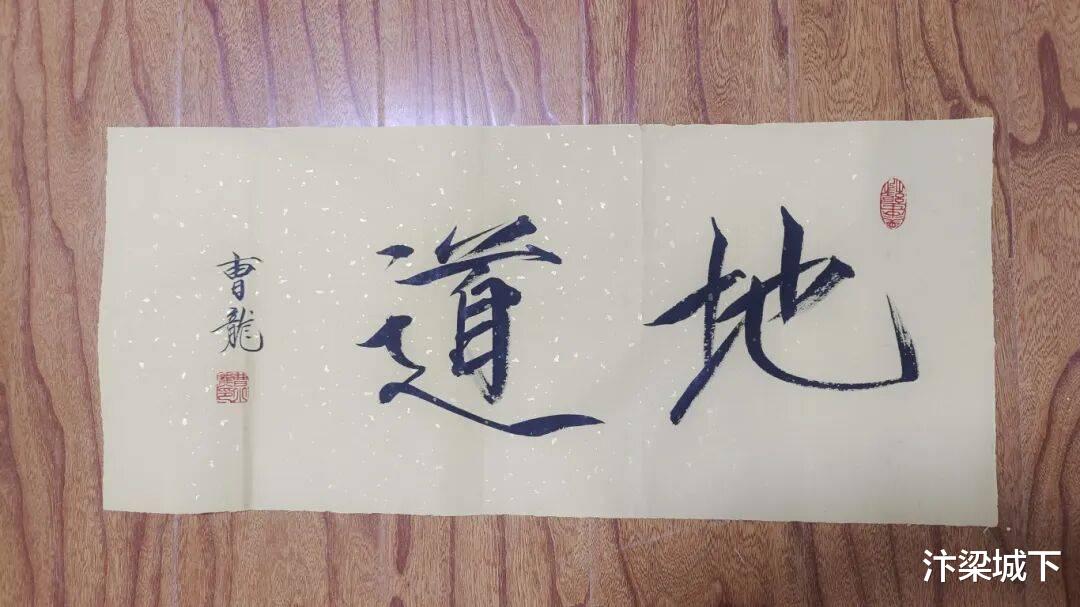 地道
曹龍
汴梁城下